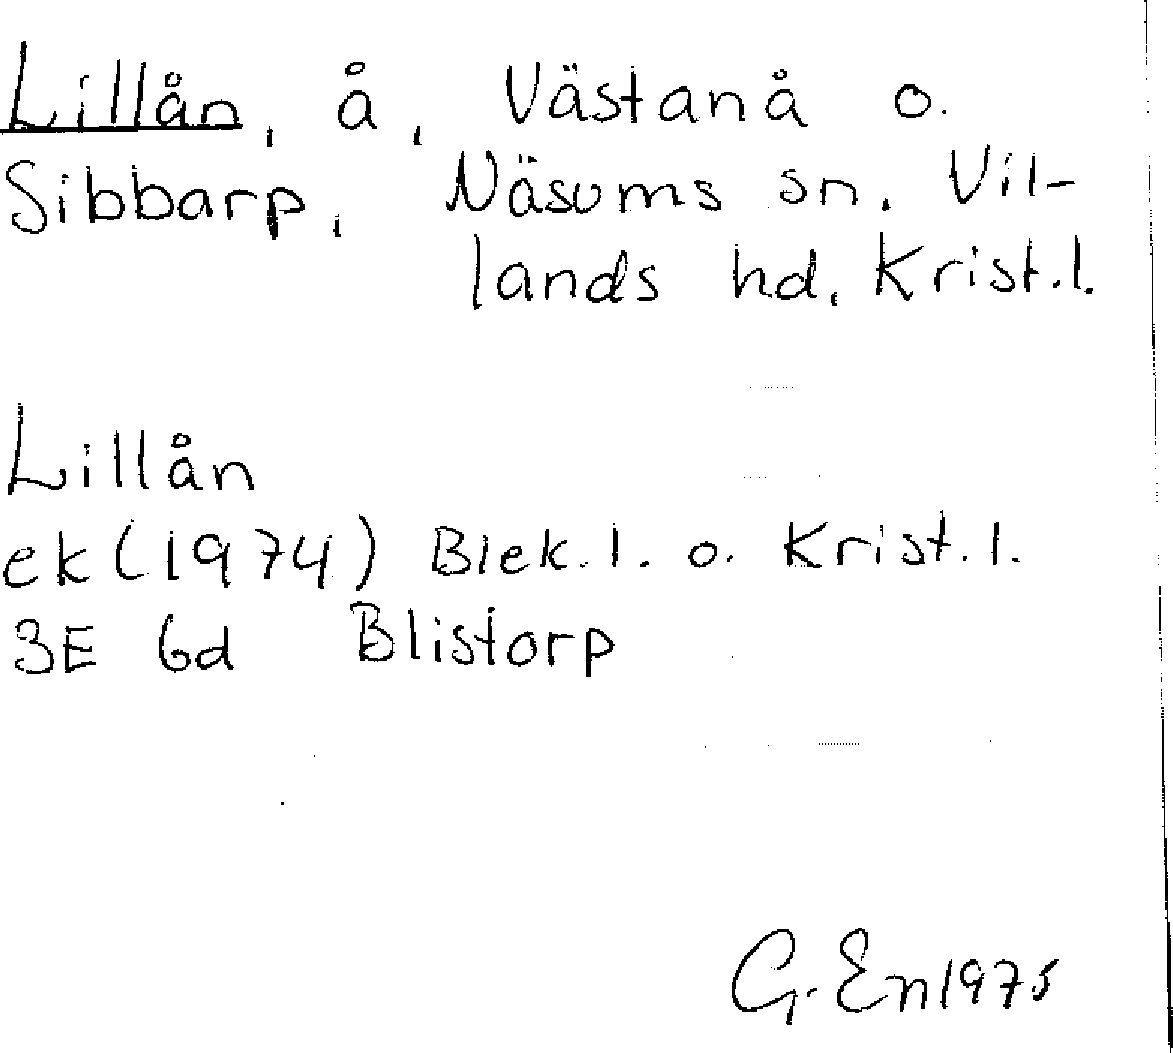 Lillån, å, Västanå o.
Sibbarp, Näsums sn, Vil-
lands hd, Krist.l.
Lillån
ek (1974) Blek.l. o. Krist.l.
3E 6d Blistorp
G. En 1975